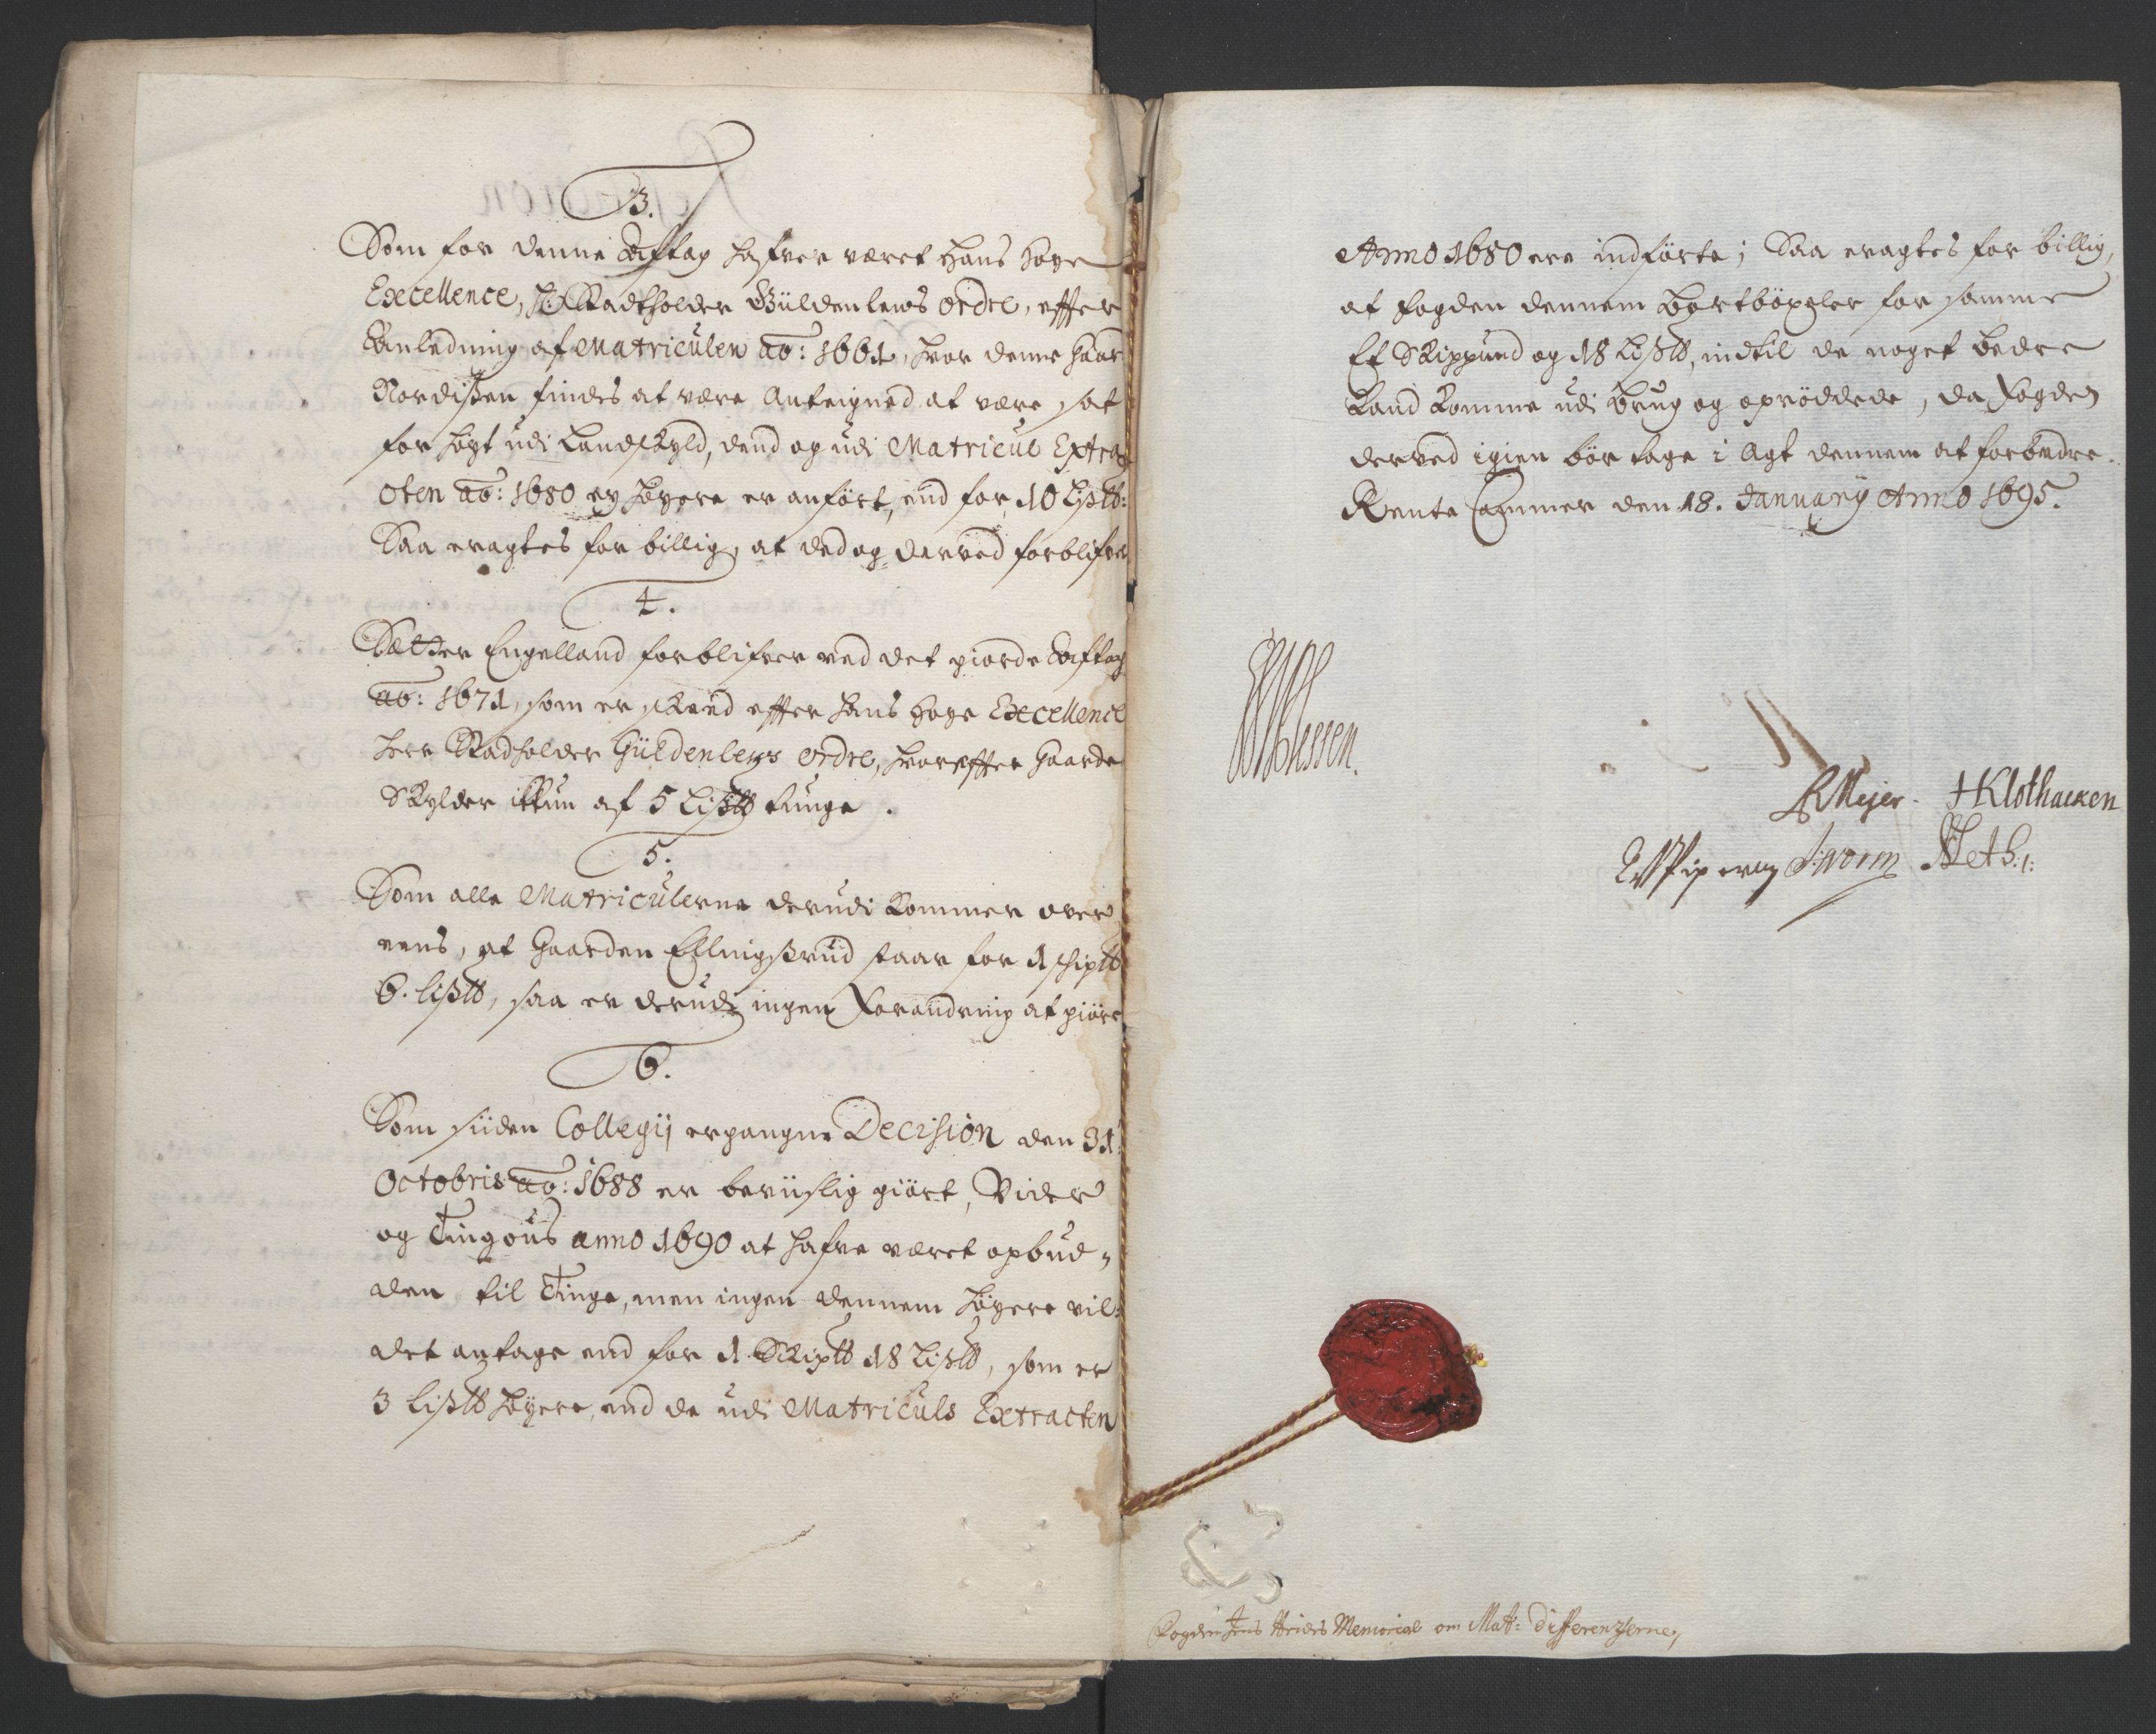 3.
Som for denne Aftag hafver været Hans Høye
Excellence, Hr: Stadtholder Güldenlews ordre, effter
Anledning af Matriculen ao: 1661, hvor denne Gaar
Nordißen findes at være Anteigned at være sat
for høyt udi Landskyld, dend og udi Matricul Extra
cten ao: 1680 ey høyere er anført, end for 10 Lißtb:
Saa eragtes for billig, at ded og derved forblifver
4.
Sætter Engelland forblifver ved det giorde Aftag
ao: 1671, som er skeed effter hans høye Excellence
Herr Stadholder Güldenleys ordre, hvoreffter Gaarde
Skylder ikkun af 5 Lißtb tunge.
5.
Som alle Matriculerne derudi kommer over
eens, at Gaarden Ellingßrud staar for 1 skiptb
6. lißtb, saa er derudi ingen Forandring at giøre
6.
Som siiden Collegij ergangne Decision den 31
Octobris ao: 1688 er beviislig giört, Vider
og Tingous anno 1690 at hafve været opbud-
den til Tinge, men ingen dennem høyere vil-
det antage end for 1 Skiptb 18 Lißtb, som er
3 Lißtb høyere, end de udi Matriculs Extracten
Anno 1680 ere indførte; Saa eragtes for billig,
at fogden dennem bortböxeler for samme
Et Skippund og 18 Lißtb, indtil de noget bedre
Land komme udi brug og oprøddede, da Fogden
derved igien bör tage i Agt dennem at forbedre.
Rente Cammer den 18. January Anno 1695.
Meyer. Klothacken
Worm
Fogden Jens Memorial om Mat: differentzerne,